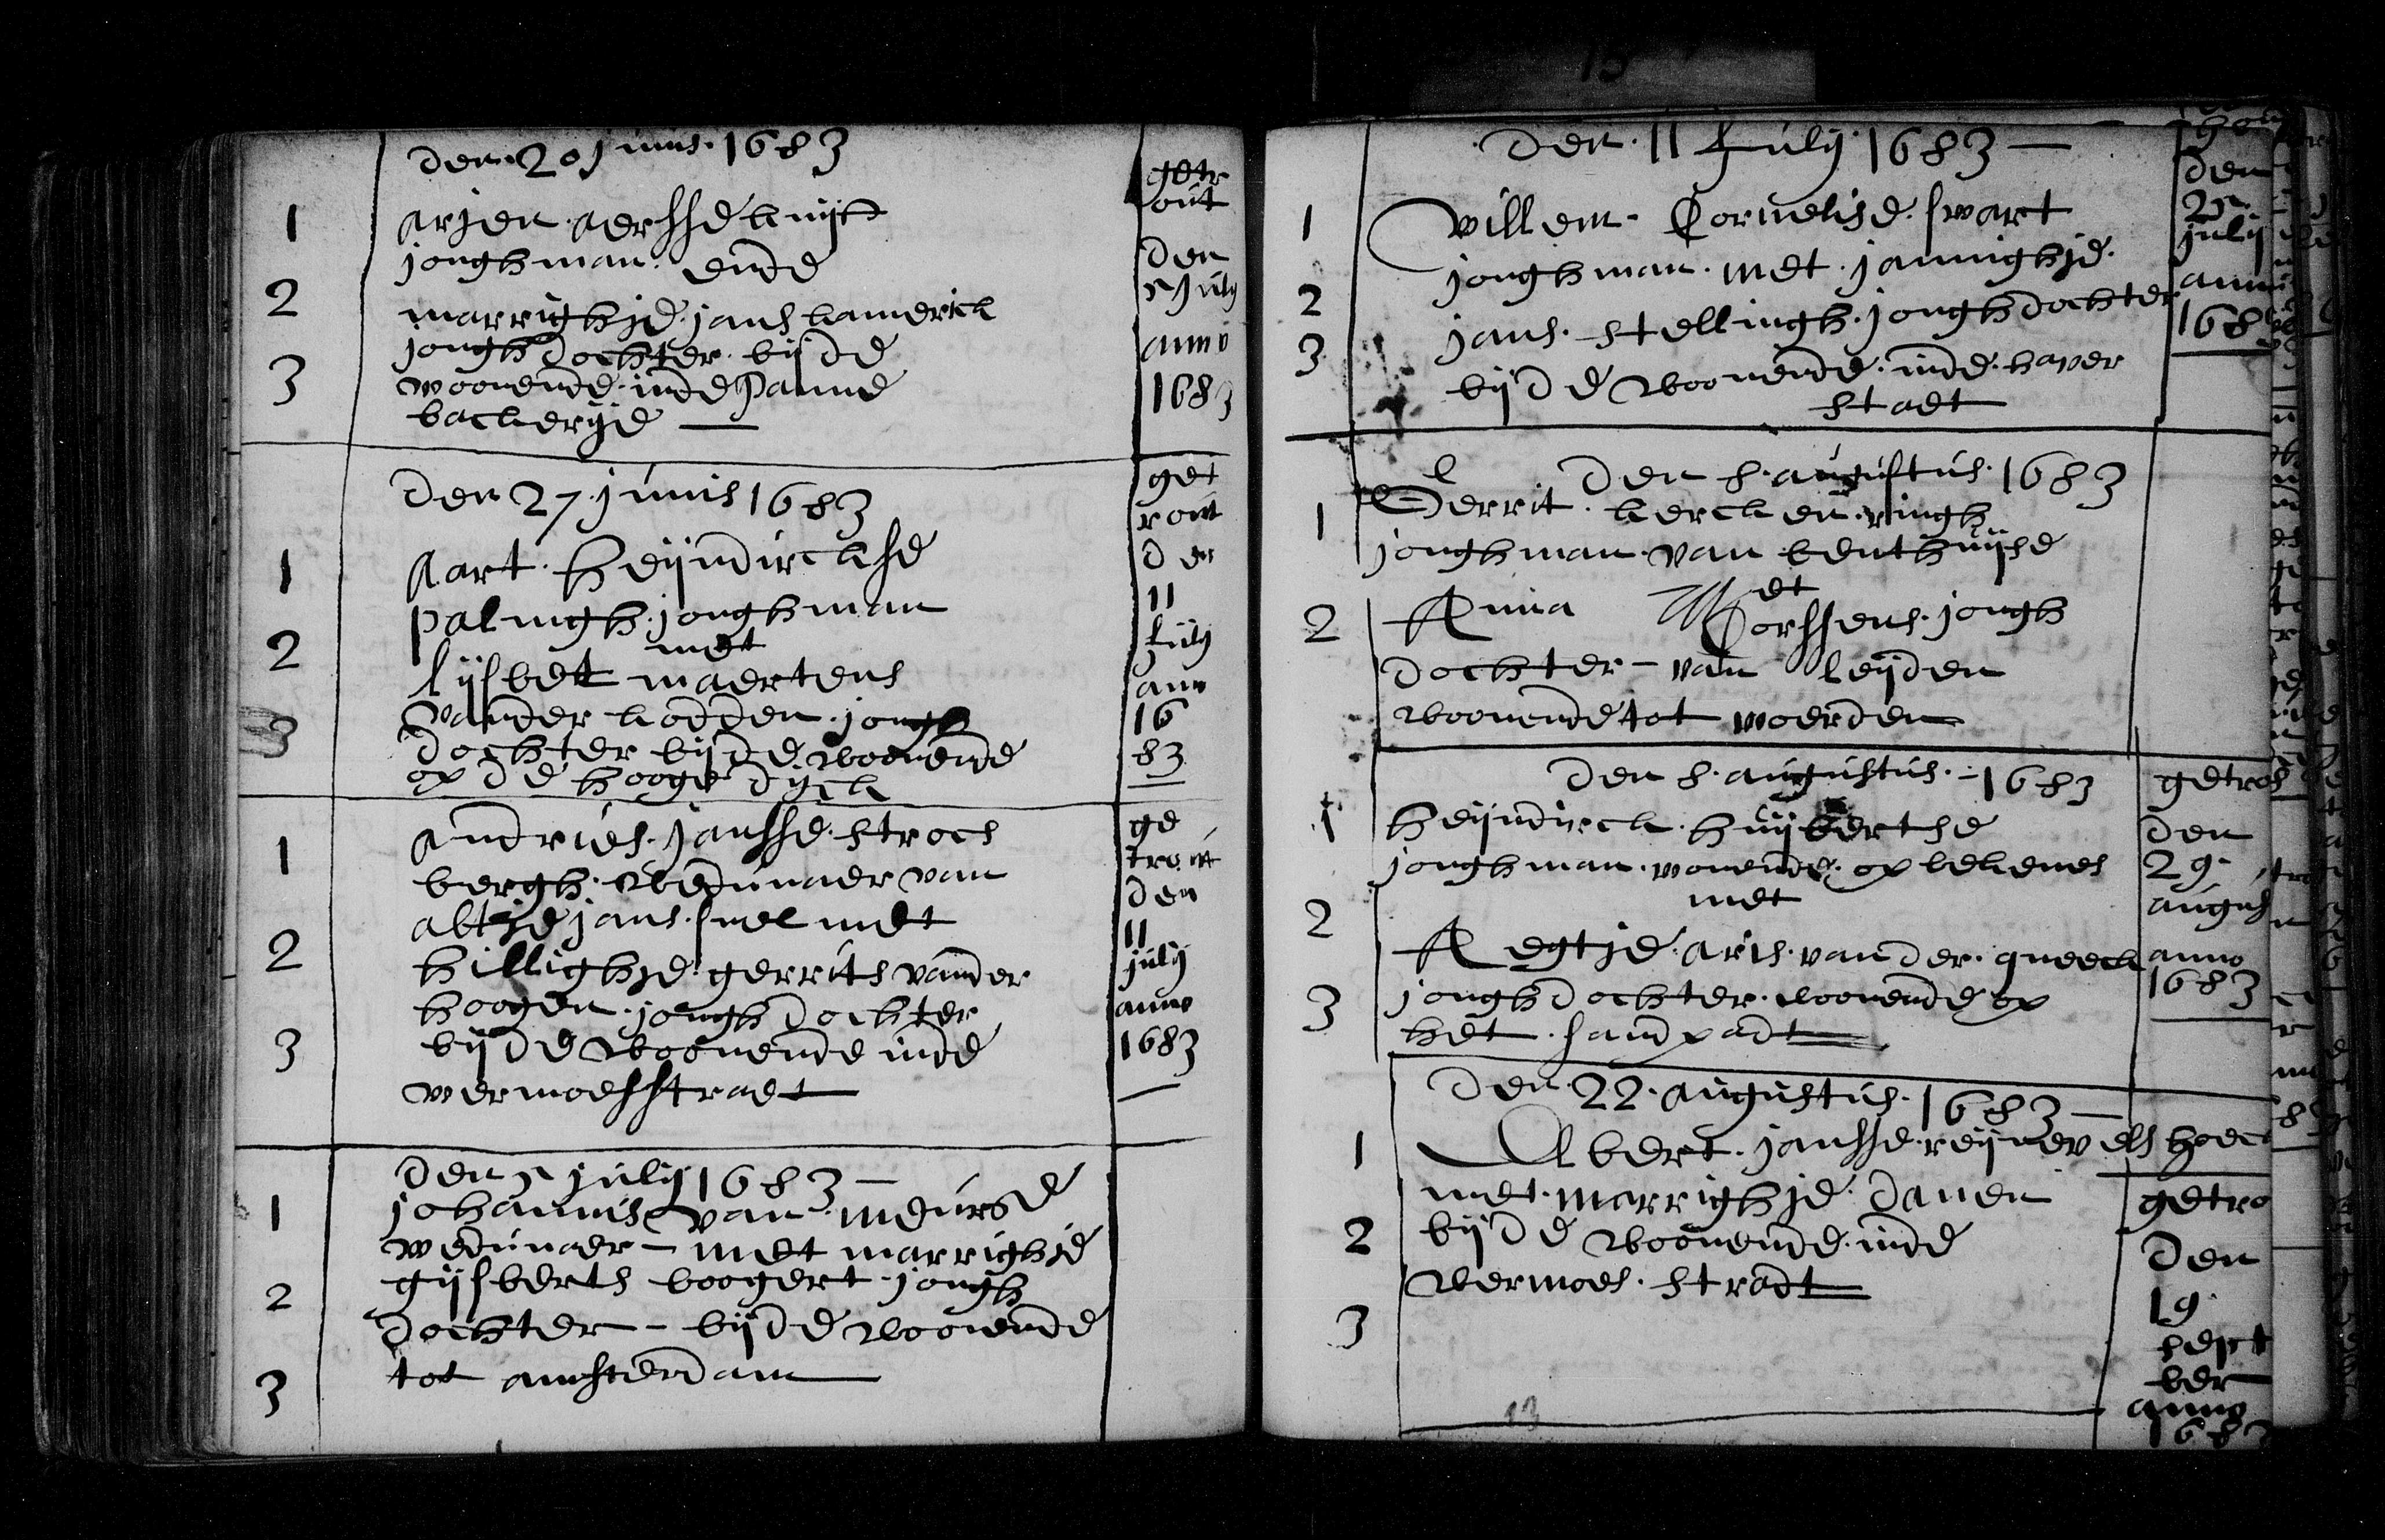 den 20 junis 1683
1 arjen aerssse knijff
jonghman ende
2 marrighje jans lamerick
jonghdochter bijde
3 woonende inde panne
backerije
getr
out
den
5 july
anno
1683
den 27 junis 1683
1 Aart heijndirckse
palingh jonghman
met
2 lijsbett maertens
vander kodden jongh
3 dochter bijde woonende
op de hooge dijck
get
rout
den
11
july
anno
16
83
1 andries jansse stroes
bergh wedunaer van
altje jans snel met
2 hillighje gerrits vander
hoogen jonghdochter
3 bijde woonende inde
wermoesstraet
ge
trout
den
11
july
anno
1683
den 5 july 1683
1 johannis van meurse
wedunaer met marrighje
2 gijsberts boogert jongh
dochter bijde woonende
3 tot amsterdam
den 11 July 1683
1 Willem Cornelise swart
jonghman met jannighje
2 jans stellingh jonghdochter
3 bijde woonende inde haver
stadt
den
25
july
anno
168
den 8 augustus 1683
1 Gerrit kerckenringh
jonghman van benthuijse
met
2 Anna Corssens jongh
dochter van leijden
woonende tot woerden
den 8 augustus 1683
1 heijndirck huijbertse
jonghman wonende op bekenes
met
2 Aegtje aris vander gneeck
3 jonghdochter woonende op
het sandpadt
getro
den
29
augus
anno
1683
den 22 augustus 1683
1 Albert jansse reijnevelshoec
met marrighje danen
2 bijde woonende inde
vermoes stradt
3
getro
den
19
sept
ber
anno
168
13